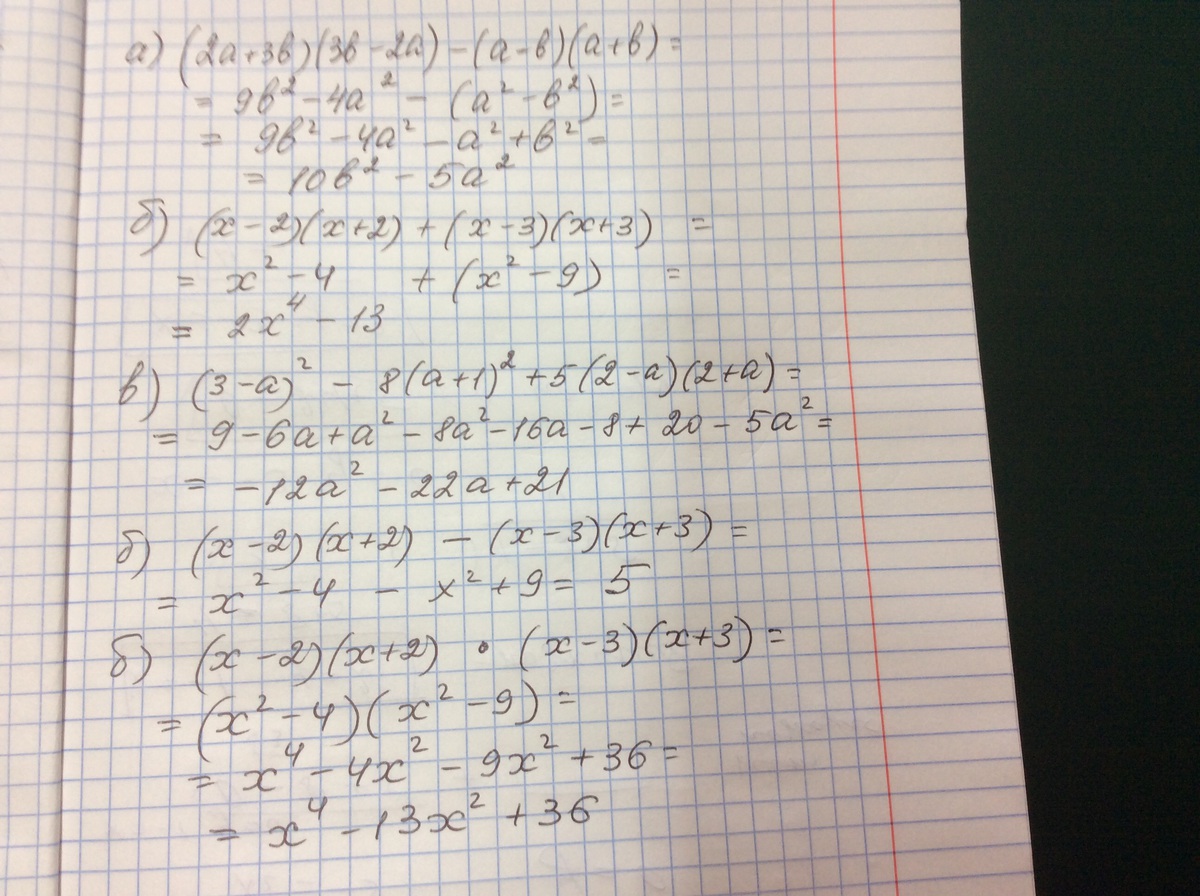 а) (2a+3b)(3b-2a)-(a-b)(a+b)=
= 9b²-4a²-(a²-b²)=
= 9b²-4a²-a²+b²=
= 10b²-5a²
б) (x-2)(x+2)+(x-3)(x+3) =
= x²-4 + (x²-9) =
= 2x⁴-13
в) (3-a)² - 8(a+1)²+5(2-a)(2+a)=
= 9-6a+a²-8a²-16a-8+20-5a²=
= -12a²-22a+21
б) (x-2)(x+2) - (x-3)(x+3)=
= x²-4 - x²+9= 5
б) (x-2)(x+2) • (x-3)(x+3)=
= (x²-4)(x²-9)=
= x⁴-4x²-9x²+36=
= x⁴-13x²+36